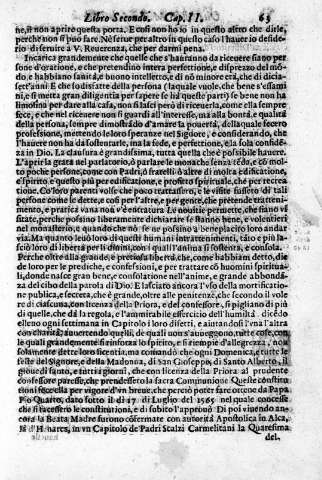 Libro Secondo. Cap. II. 63
ne, si non aprire questa porta. E così non hò io in questo altro che dirle,
perche non si può fare. Nè forse per altro in questo caso l'hauerò deside-
rio di seruire a V. Reuerenza, che per darmi pena.
Incarica grandemente che quelle che s'hauranno da riceuere siano per-
sone d'oratione, e che pretendino intera perfettione, e disprezzo del mõ-
do, e habbiano sanità, e buono intelletto, e di nõ minore età, che di dicia-
sett'anni. E che sodisfatte della persona (la quale vuole, che bene s'esami
ni, e si metta gran diligitia per sapere se hà queste parti) se bene non hà
limosina per dare alla casa, non si lasci però di riceuerla, come ella sempre
fece, e che nel riceuere non si guardi all'interesse, ma alla bontà, e qualità
della persona, sempre dimostrãdo d'amare la pouertà, della quale fecero
professione, mettendo le loro speranze nel Signore, e considerando, che
l'hauere non hà da sostentarle, ma la fede, e perfettione, e la sola confidẽ-
za in Dio. La clausura è grandissima, tutta quella che è possibile hauere.
L'aprir la grata nel parlatorio, ò parlare le monache senza tẽda, è cõ mol-
to poche persone, come con Padri, ò fratelli ò altre di molta edificatione,
e spirito, e questo più per edificatione, e profitto spirituale, che per recrea
tione. Co' loro parenti vuole che poco trattassero, e le visite fussero di tali
persone come le dette, e così per l'altre, e per gente, che pretende trattteni-
mento, e pratica vana non v'è entratura. Le nouitie permette, che siano vi
sitate, perche possano liberamente dichiarare se stanno bene, e volentieri
nel monasterio, e quando che nò se ne possino a beneplacito loro andar
via. Ma quanto leuò loro di questi humani intrattenimenti, tãto e più la-
sciò loro di libertà per li diuini, con i quali l'anima si sostenta, e consola.
Perche oltre alla grande, e pretiosa libertà, che, come habbiam detto, die
de loro per le prediche, e confessioni, e per trattare cõ huomini spiritua-
li, donde nasce gran bene, e consolatione nell'anime, e grande abbondã-
za del cibo della parola di Dio. E lasciato ancora l'vso della mortificatio-
ne publica, e secreta, che è grande, oltre alle penitenze, che secondo il vole
re di ciascuna, con licenza della Priora, e del confessore, si pigliano di più
di quelle, che dà la regola, e l'ammirabile essercitio dell'humiltà. dicẽdo
elleno ogni settimana in Capitolo i loro difetti, e aiutandosi l'vna l'altra
con charità, auuertendo quelli, de quali non s'auueggono. tutte cose, con
le quali grandemente si rinforza lo spirito, e si riempie d'allegrezza, non
solamente dette loro licentia, ma comandò che ogni Domenica, e tutte le
feste del Signore, e della Madonna, di san Gioseppe, di Santo Alberto, il
giouedì santo, e tutti i giorni, che con licenza della Priora al prudente
confessore paresse, che prendessero la sacra Communione Queste constitu
tioni fece ella per vigore d'vn breue, che perciò poter fare ottene da Papa
Pio Quarto, dato sotto il dì 17. di Luglio del 1565 nel quale concesse
che si facessero le constitutioni, e di subito l'approuò Di poi viuendo an-
cora la Beata Madre furono cõfermate con autorità Apostolica in Alca,
là d'Henares, in vn Capitolo de Padri Scalzi Carmelitani la Quaresima
del,